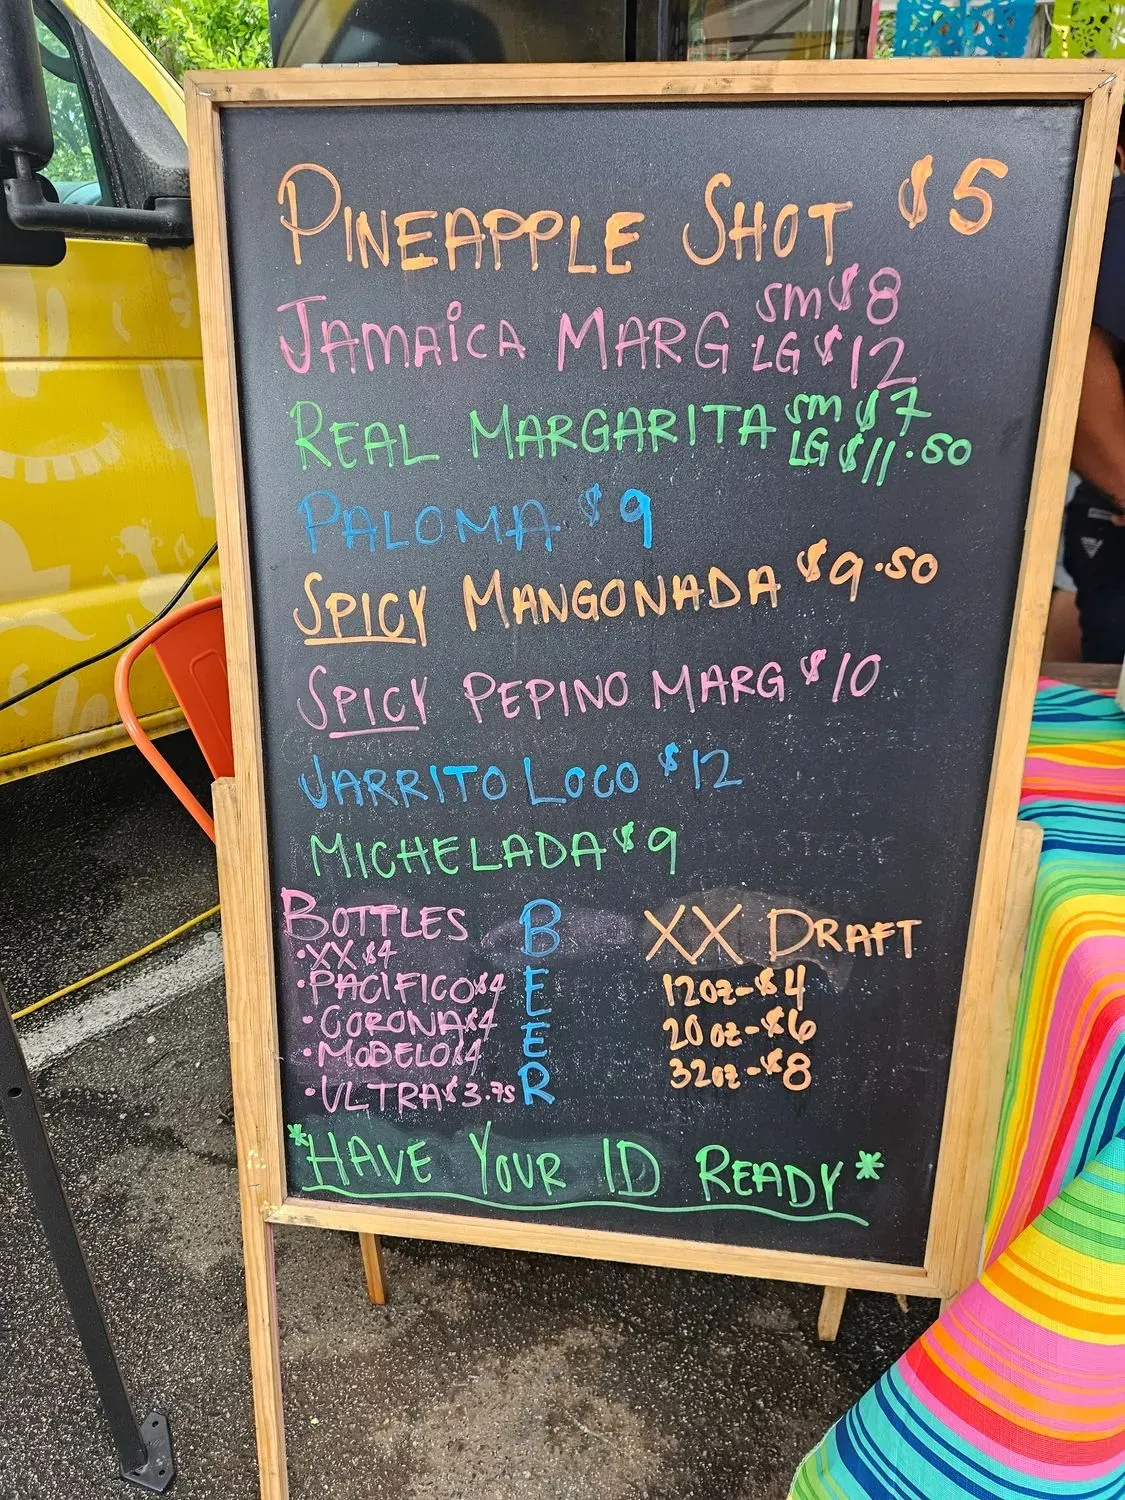 PINEAPPLE SHOT $5
JAMAICA MARG SM $8
LG $12
REAL MARGARITA SM $7
LG $11.50
PALOMA $9
SPICY MANGONADA $9.50
SPICY PEPINO MARG $10
JARRITO LOCO $12
MICHELADA $9
BOTTLES
•XX $4
•PACIFICO $4
•CORONA $4
•MODELO $4
•ULTRA $3.75
BEER
XX DRAFT
12oz-$4
20oz-$6
32oz-$8
*HAVE YOUR ID READY*